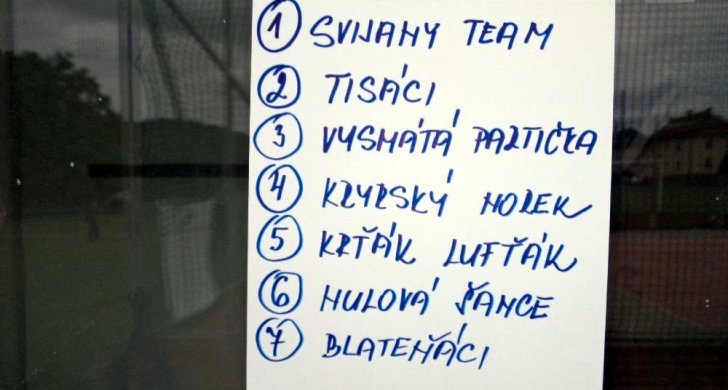 1 SVIJANY TEAM
2 TISÁCI
3 VYSMÁTÁ PARTIČKA
4 KRYRSKÝ NOREK
5 KRŤÁK LUFŤÁK
6 NULOVÁ ŠANCE
7 BLATEŇÁCI